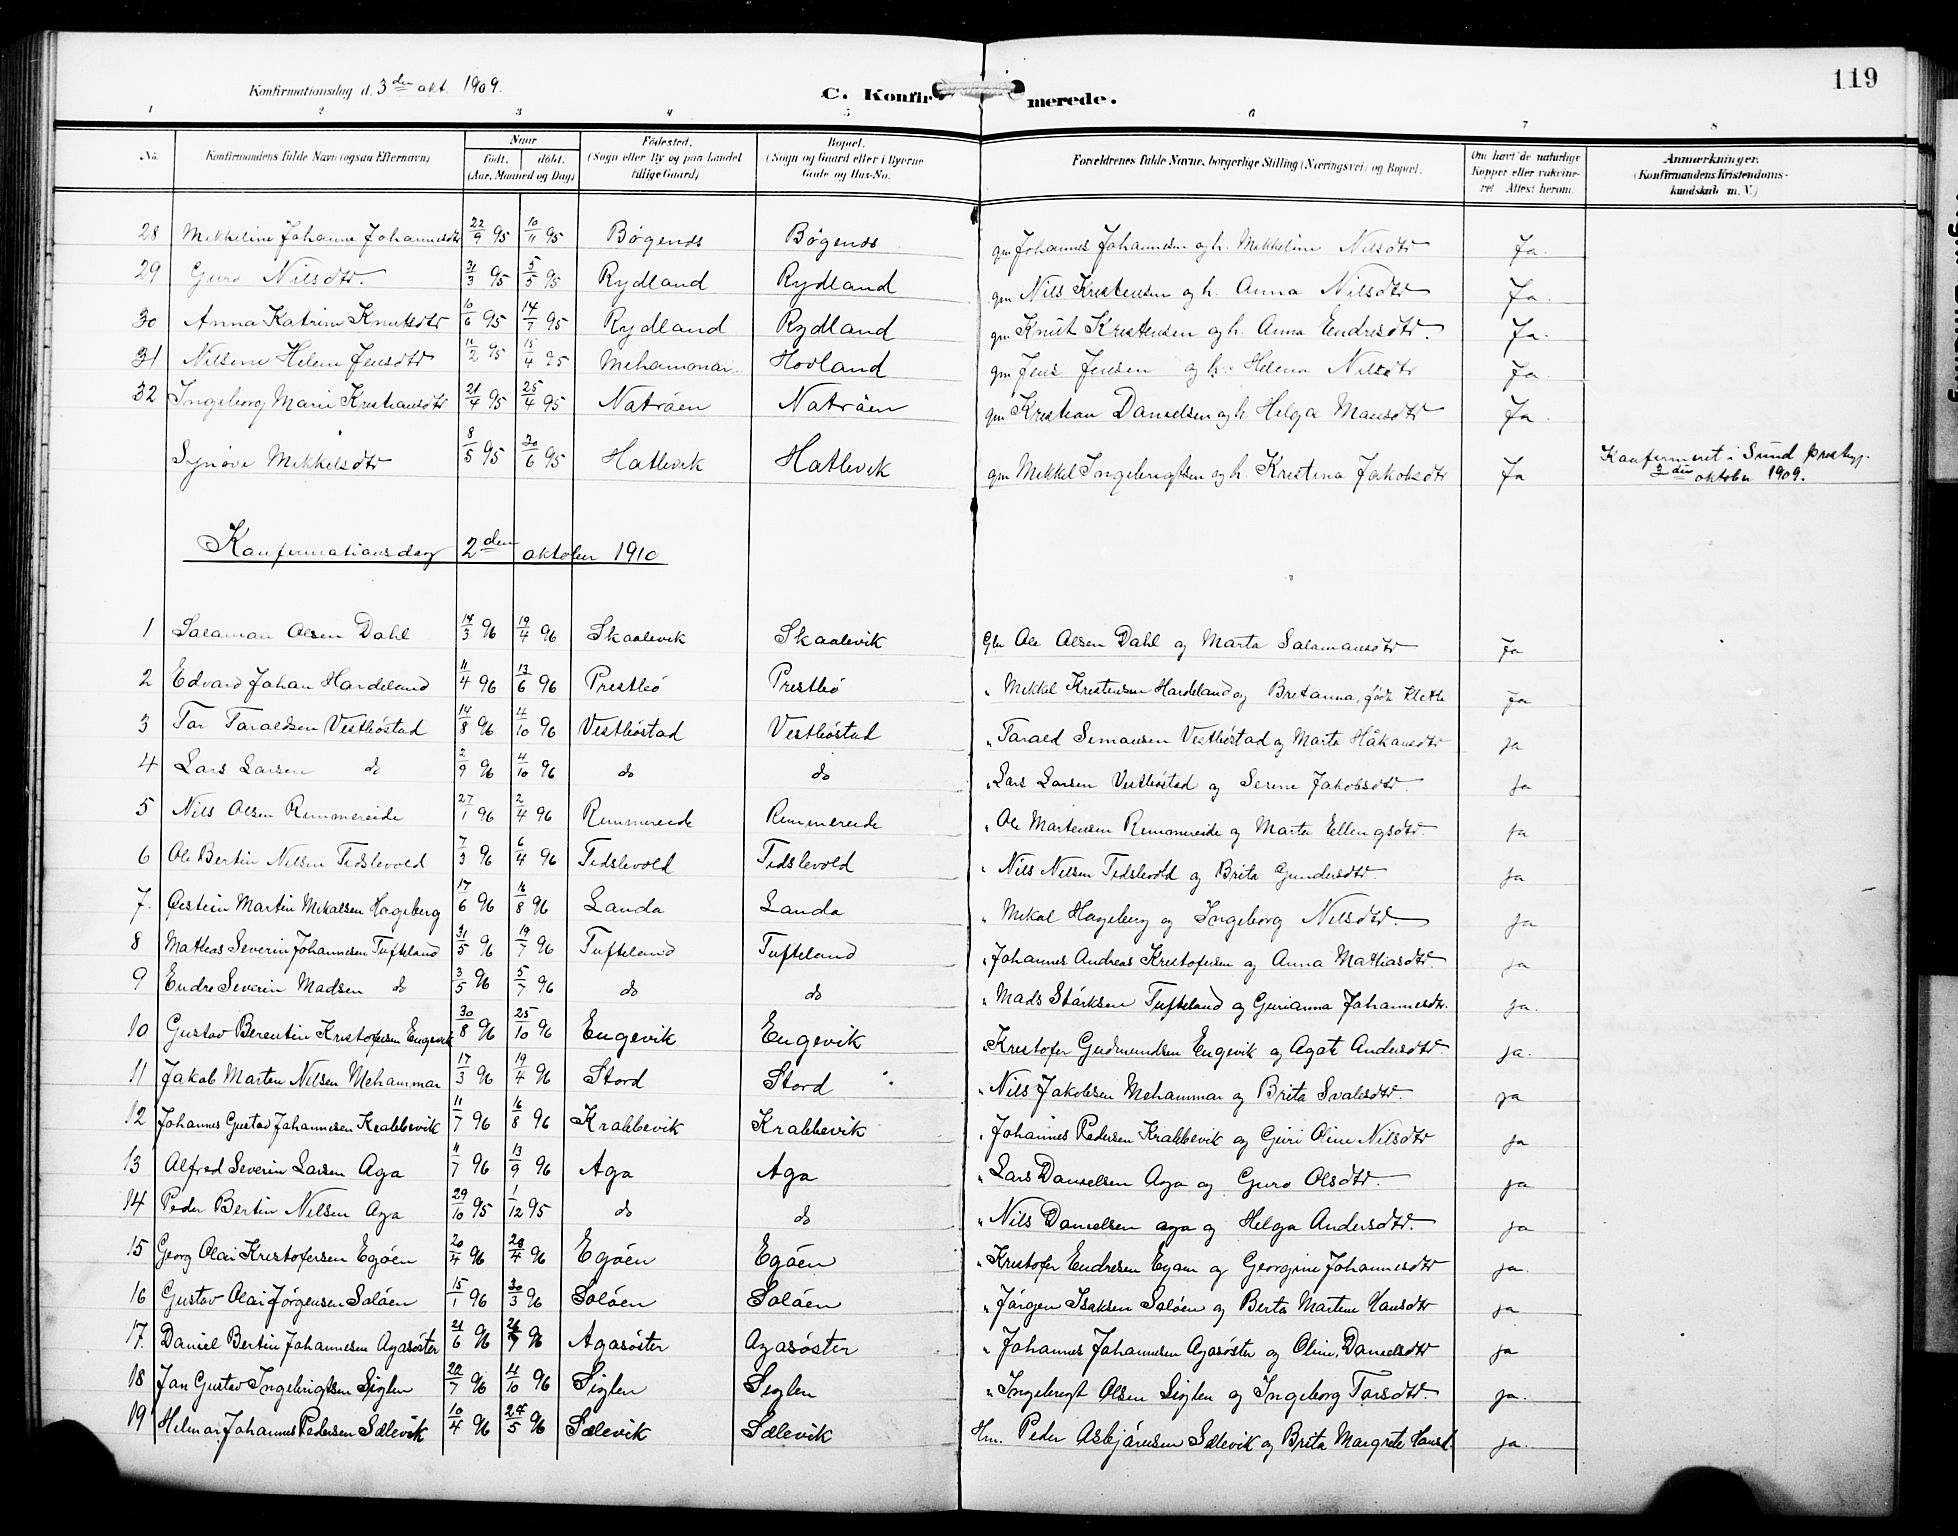 119
Konfirmationsdag d. 3die okt. 1909.
C. Konfirmerede.
1 2 3 4 5 6 7 8
No. Konfirmandens fulde Navn (ogsaa Efternavn) Naar født. døbt. (Aar, Maaned og Dag) Fødested. (Sogn eller By og paa Landet tillige Gaard) Bopæl. (Sogn og Gaard eller i Byerne Gade og Hus-No. Forældrenes fulde Navne, borgerlige Stilling (Næringsvei) og Bopæl. Om havt de naturlige Kopper eller vakcineret Attest herom. Anmærkninger. (Konfirmandens Kristendomskundskab m. V.)
28 Mikkeline Johanne Johannesdtr 22/9 95 10/11 95 Bögenes Bögenes gm Johannes Johannesen og h. Mikkeline Nilsdtr Ja.
29 Guro Nilsdtr. 31/3 95 5/5 95 Rydland Rydland gm Nils Kristensen og h. Anna Nilsdtr Ja.
30 Anna Katrine Knutsdtr 10/6 95 14/7 95 Rydland Rydland gm Knut Kristensen og h. Anna Endresdtr. Ja.
31 Nilsine Helene Jensdtr 11/2 95 15/4 95 Mehammar Hovland gm Jens Jensen og h. Helena Nilsdtr Ja
32 Ingeborg Marie Kristiansdtr 21/4 95 25/4 95 Natröen Natröen gm Kristian Danielsen og h. Helga Mansdtr Ja.
Synöve Mikkelsdtr 8/5 95 30/6 95 Hatlevik Hatlevik gm Mikkel Ingebrigtsen og h. Kristina Jakobsdtr Ja Konfirmeret i Sund prestegj.
3die oktober 1909.
Konfirmationsdag 2den oktober 1910
1 Salamon Olsen Dahl 14/3 96 19/4 96 Skaalevik Skaalevik Gbr Ole Olsen Dahl og Marta Salamonsdtr Ja
2 Edvard Johan Hardeland 11/4 96 13/6 96 Prestbö Prestbö " Mikkel Kristensen Hardeland og Britanna, født Klette Ja
3 Tor Taraldsen Vestböstad 14/8 96 4/10 96 Vestböstad Vestböstad " Tarald Simonsen Vestböstad og Marta Håkonsdtr ja
4 Lars Larsen do 2/9 96 4/10 96 do do " Lars Larsen Vestböstad og Serine Jakobsdtr. ja
5 Nils Olsen Rimmereide 27/1 96 2/4 96 Rimmereide Rimmereide " Ole Martensen Rimmereide og Marta Ellengsdtr. ja
6 Ole Bertin Nilsen Tidslevold 7/3 96 6/4 96 Tidslevold Tidslevold " Nils Nilsen Tidslevold og Brita Gundersdtr. ja
7. Øistein Martin Mikalsen Hageberg 17/6 96 16/8 96 Landa Landa " Mikal Hageberg og Ingeborg Nilsdtr. ja
8 Matias Severin Johannesen Tufteland 31/5 96 19/7 96 Tufteland Tufteland " Johannes Andreas Kristofersen og Anna Matiasdtr. ja
9 Endre Severin Madsen do 3/5 96 5/7 96 do do " Mads Störksen Tufteland og Gurianna Johannesdtr. ja.
10 Gustav Berentin Kristofersen Engevik 30/8 96 25/10 96 Engevik Engevik " Kristofer Gudmundsen Engevik og Agat Andersdtr. ja.
11 Jakob Martin Nilsen Mehammar 17/3 96 19/4 96 Stord Stord " Nils Jakobsen Mehammar og Brita Svalesdtr. ja
12 Johannes Gustav Johannesen Krabbevik 11/7 96 16/8 96 Krabbevik Krabbevik " Johannes Pedersen Krabbevik og Guri Oline Nilsdtr ja
13 Alfred Severin Larsen Aga 11/7 96 13/9 96 Aga Aga " Lars Danielsen Aga og Guro Olsdtr. ja
14 Peder Bertin Nilsen Aga 29/10 95 1/12 95 do do " Nils Danielsen Aga og Helga Andersdtr. ja
15 Georg Olai Kristofersen Egöen 20/4 96 28/4 96 Egöen Egöen " Kristofer Endresen Egöen og Georgine Johannesdtr ja.
16 Gustav Olai Jörgensen Solöen 15/1 96 30/3 96 Solöen Solöen " Jörgen Isaksen Solöen og Berta Martine Hansdtr ja
17. Daniel Bertin Johannesen Agasöster 21/6 96 26/7 96 Agasöster Agasöster " Johannes Johannesen Agasöster og Oline Danielsdtr ja
18 Jan Gustav Ingebrigtsen Siglen 22/7 96 4/10 96 Siglen Siglen " Ingebrigt Olsen Siglen og Ingeborg Torsdtr. ja.
19 Helmar Johannes Pedersen Sælevik 10/4 96 24/5 96 Sælevik Sælevik Hm. Peder Asbjörnsen Sælevik og Brita Margrete Hansd. ja.